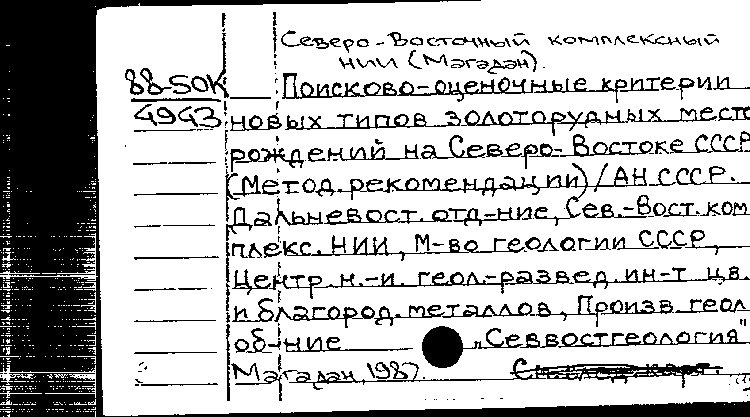 Северо-Восточный комплексный
НИИ (Магадан).
88-50К Поисково-оценочные критерии
4943 новых типов золоторудных место
рождений на Северо-Востоке СССР
(Метод.рекомендации)/АН СССР.
Дальневост. отд-ние, Сев.-Вост. ком
плекс. НИИ, М-во геологии СССР,
Центр. н.-и. геол.-развед. ин-т цв.
и благород. металлов, Произв. геол
об-ние "Севвостгеология"
Магадан, 1987. См. след. карт.